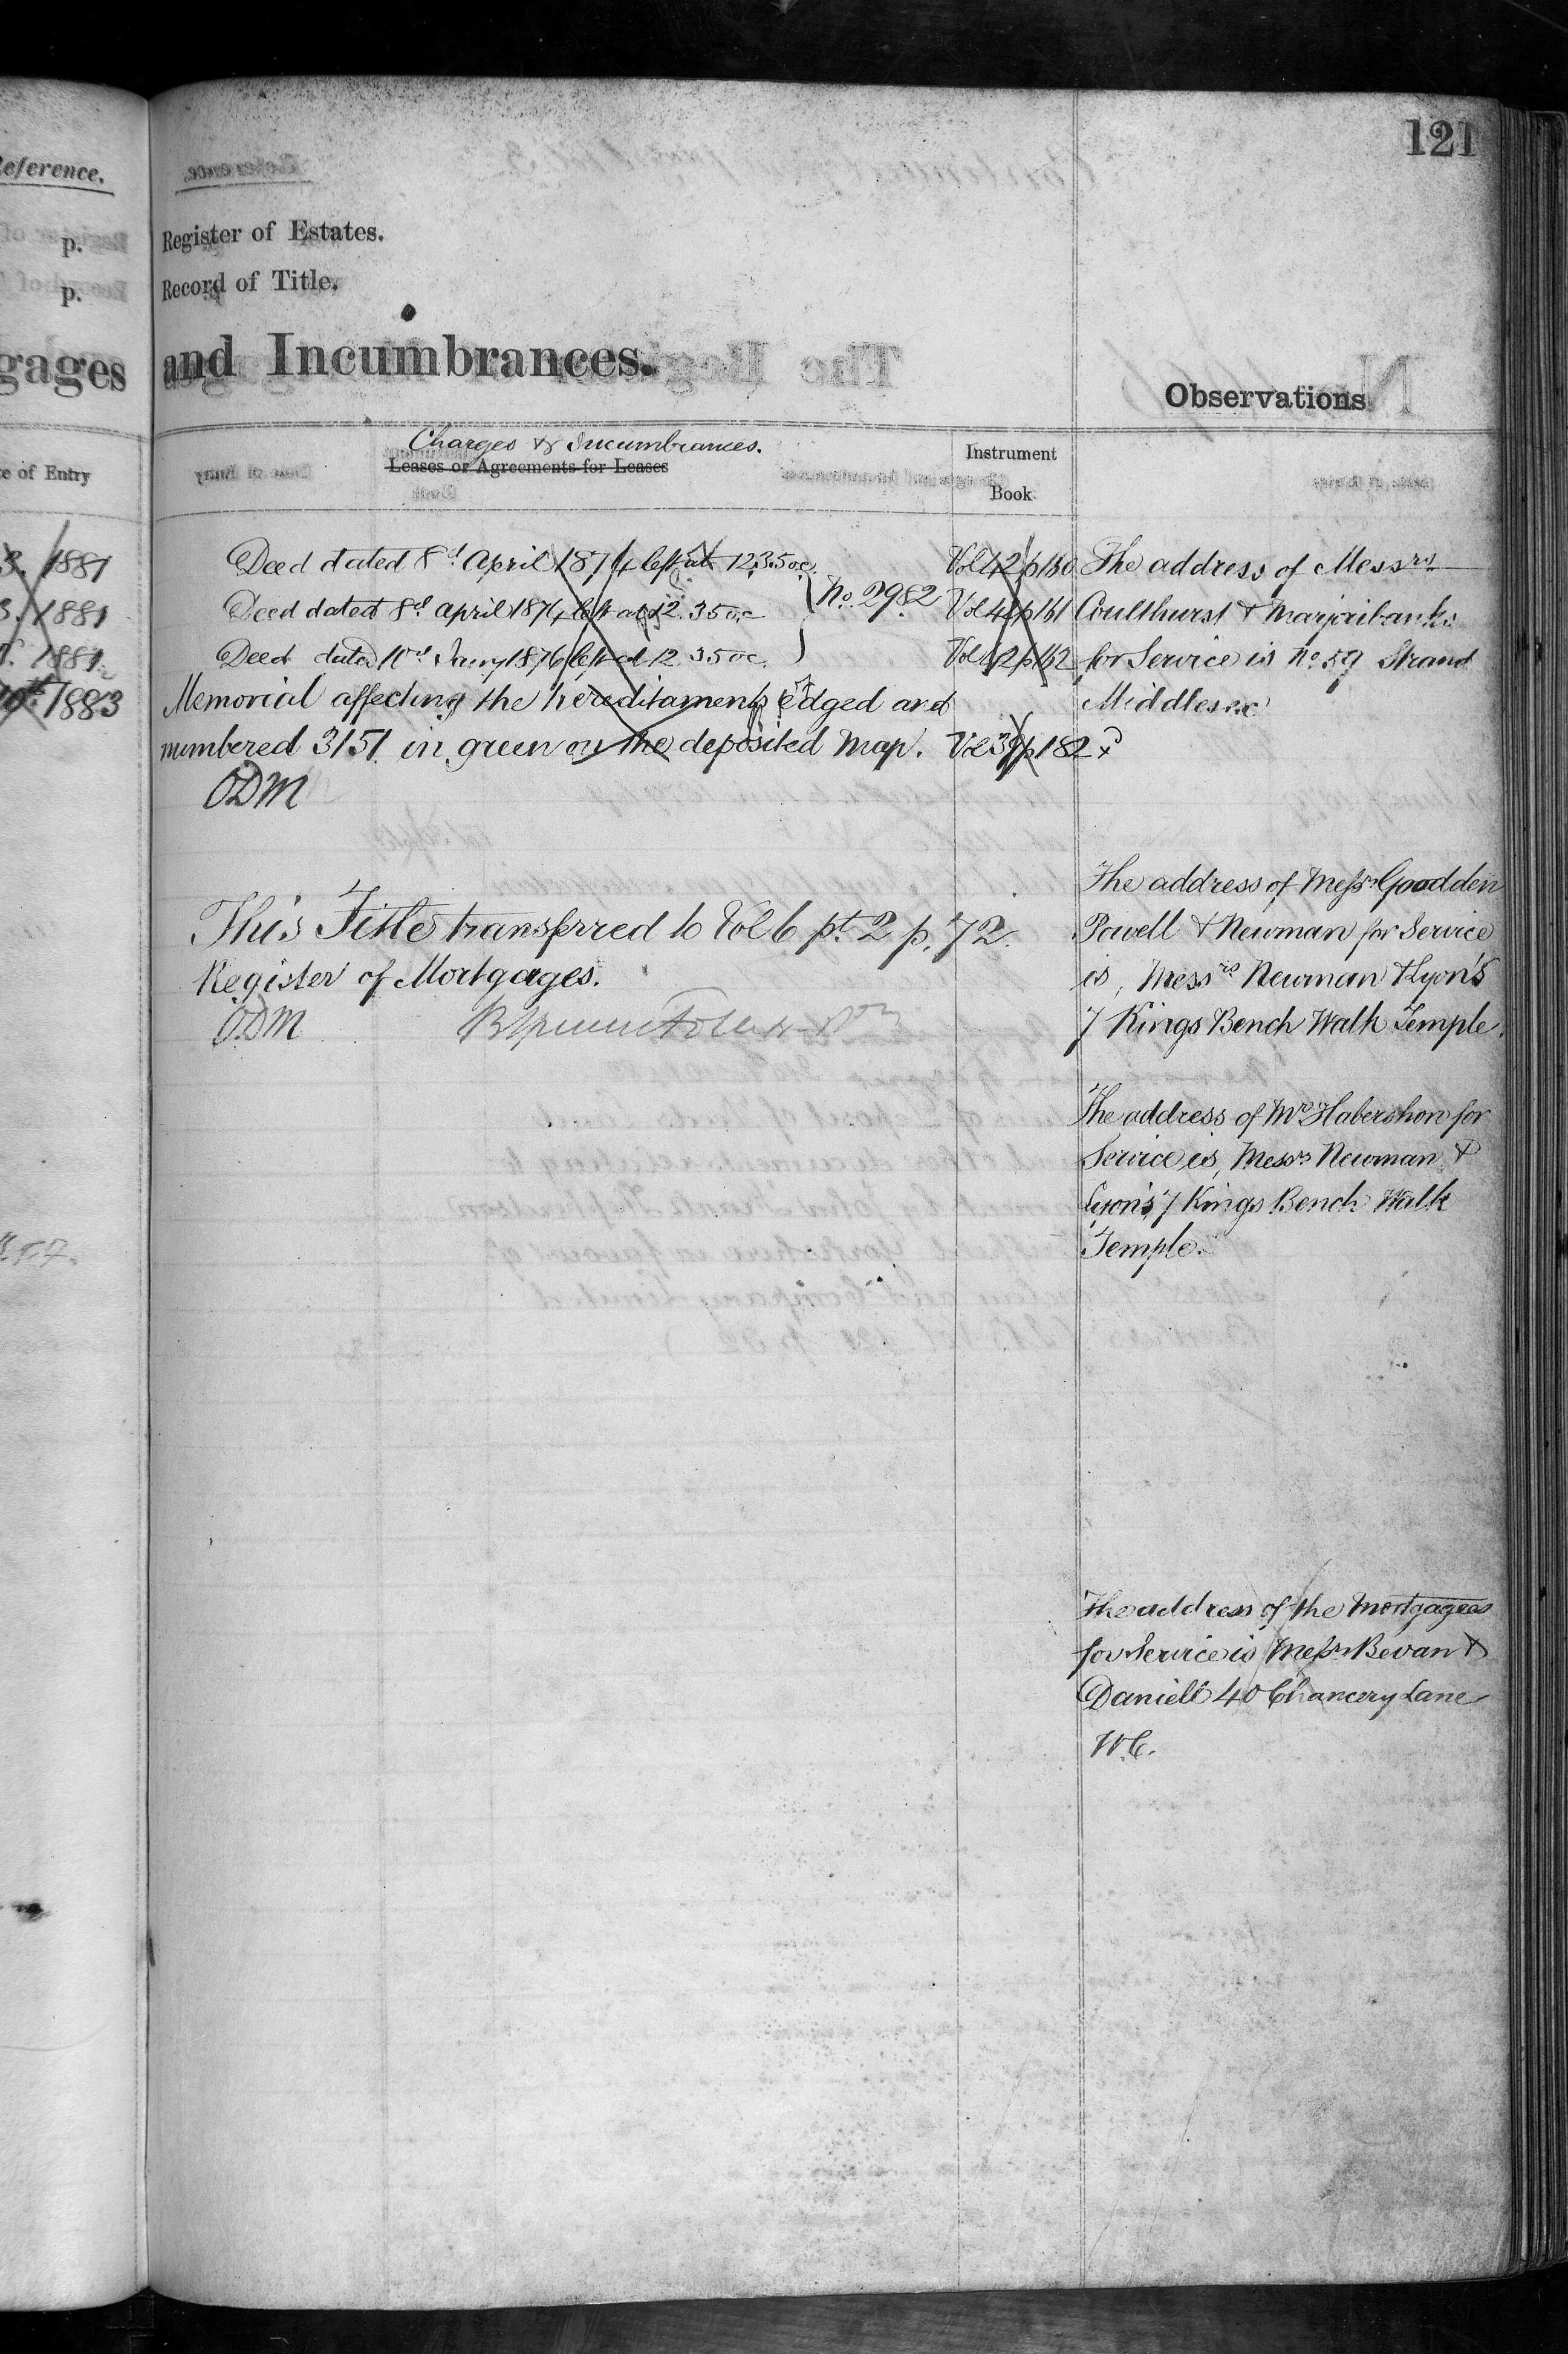 121
Reference.
p.
p.
gages
e of Entry
3. 1881
3. 1881
1881
1883
Register of Estates.
Record of Title.
and Incumbrances.
Observations
Charges & Incumbrances.
Leases or Agreements for Leases
Instrument
Book
Deed dated 8th April 1874 left at 12.35 oc.
Deed dated 8th April 1874 left at 12.35 oc
Deed dated Jany 1876 left at 12.35 oc.
No. 2982
Vol 42 p 160
Vol 42 p 161
Vol 42 p 162
Memorial affecting the hereditaments edged and
numbered 3151 in green on the deposited Map. Vol 39 p 182
ODM
This Title transferred to Vol 6 pt. 2 p. 72.
Register of Mortgages.
ODM
The address of Messrs
Coulthurst & Marjoribanks
for Service is No 59 Strand
Middlesex
The address of Messrs Goodden
Powell & Newman for Service
is, Messrs Newman & Lyon's
7 Kings Bench Walk Temple.
The address of Mr Habershon for
Service is, Messrs Newman &
Lyon's, 7 Kings Bench Walk
Temple.
The address of the Mortgagees
for Service is Messrs Bevan &
Daniell 40 Chancery Lane
W.C.